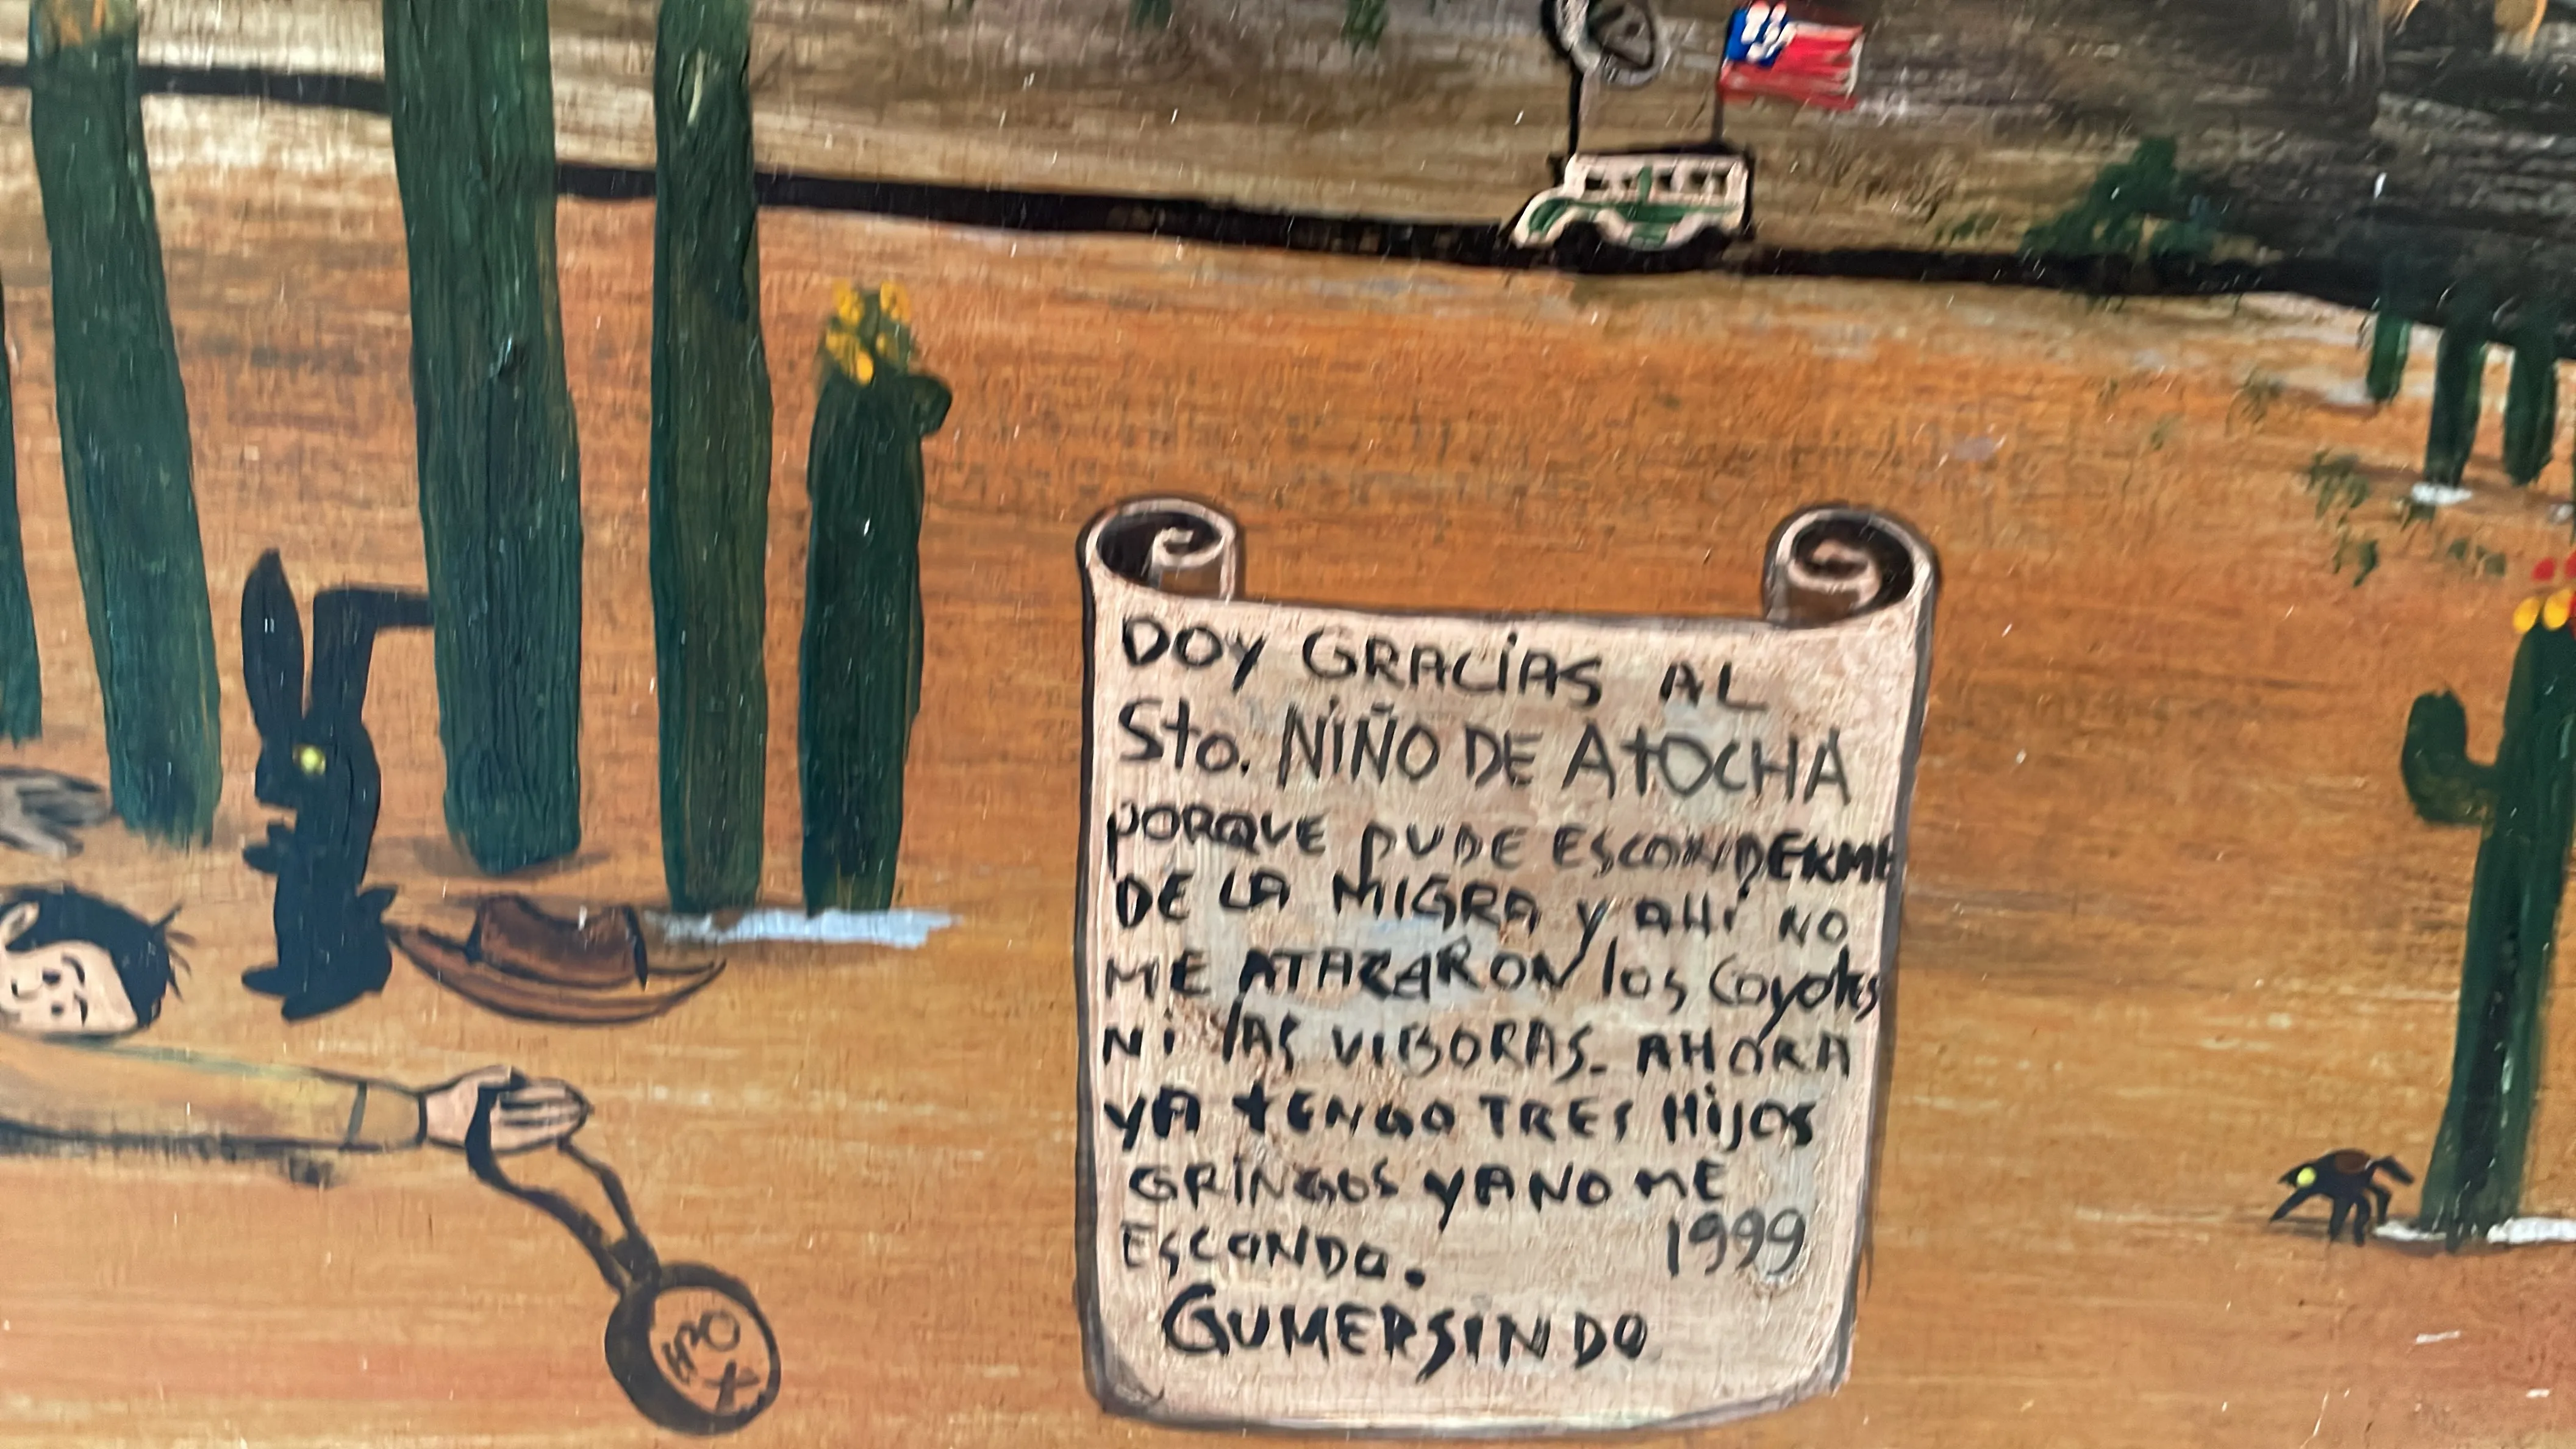 DOY GRACIAS AL
Sto. NIÑO DE AtOCHA
PORQUE PUDE ESCONDERME
DE LA MIGRA Y AHÍ NO
ME ATACARON los Coyotes
Ni lAS VIBORAS. AHORA
YA tENGO TRES HijOS
GRINGOS YA NO ME
ESCONDO. 1999
GUMERSINDO
H2O
X